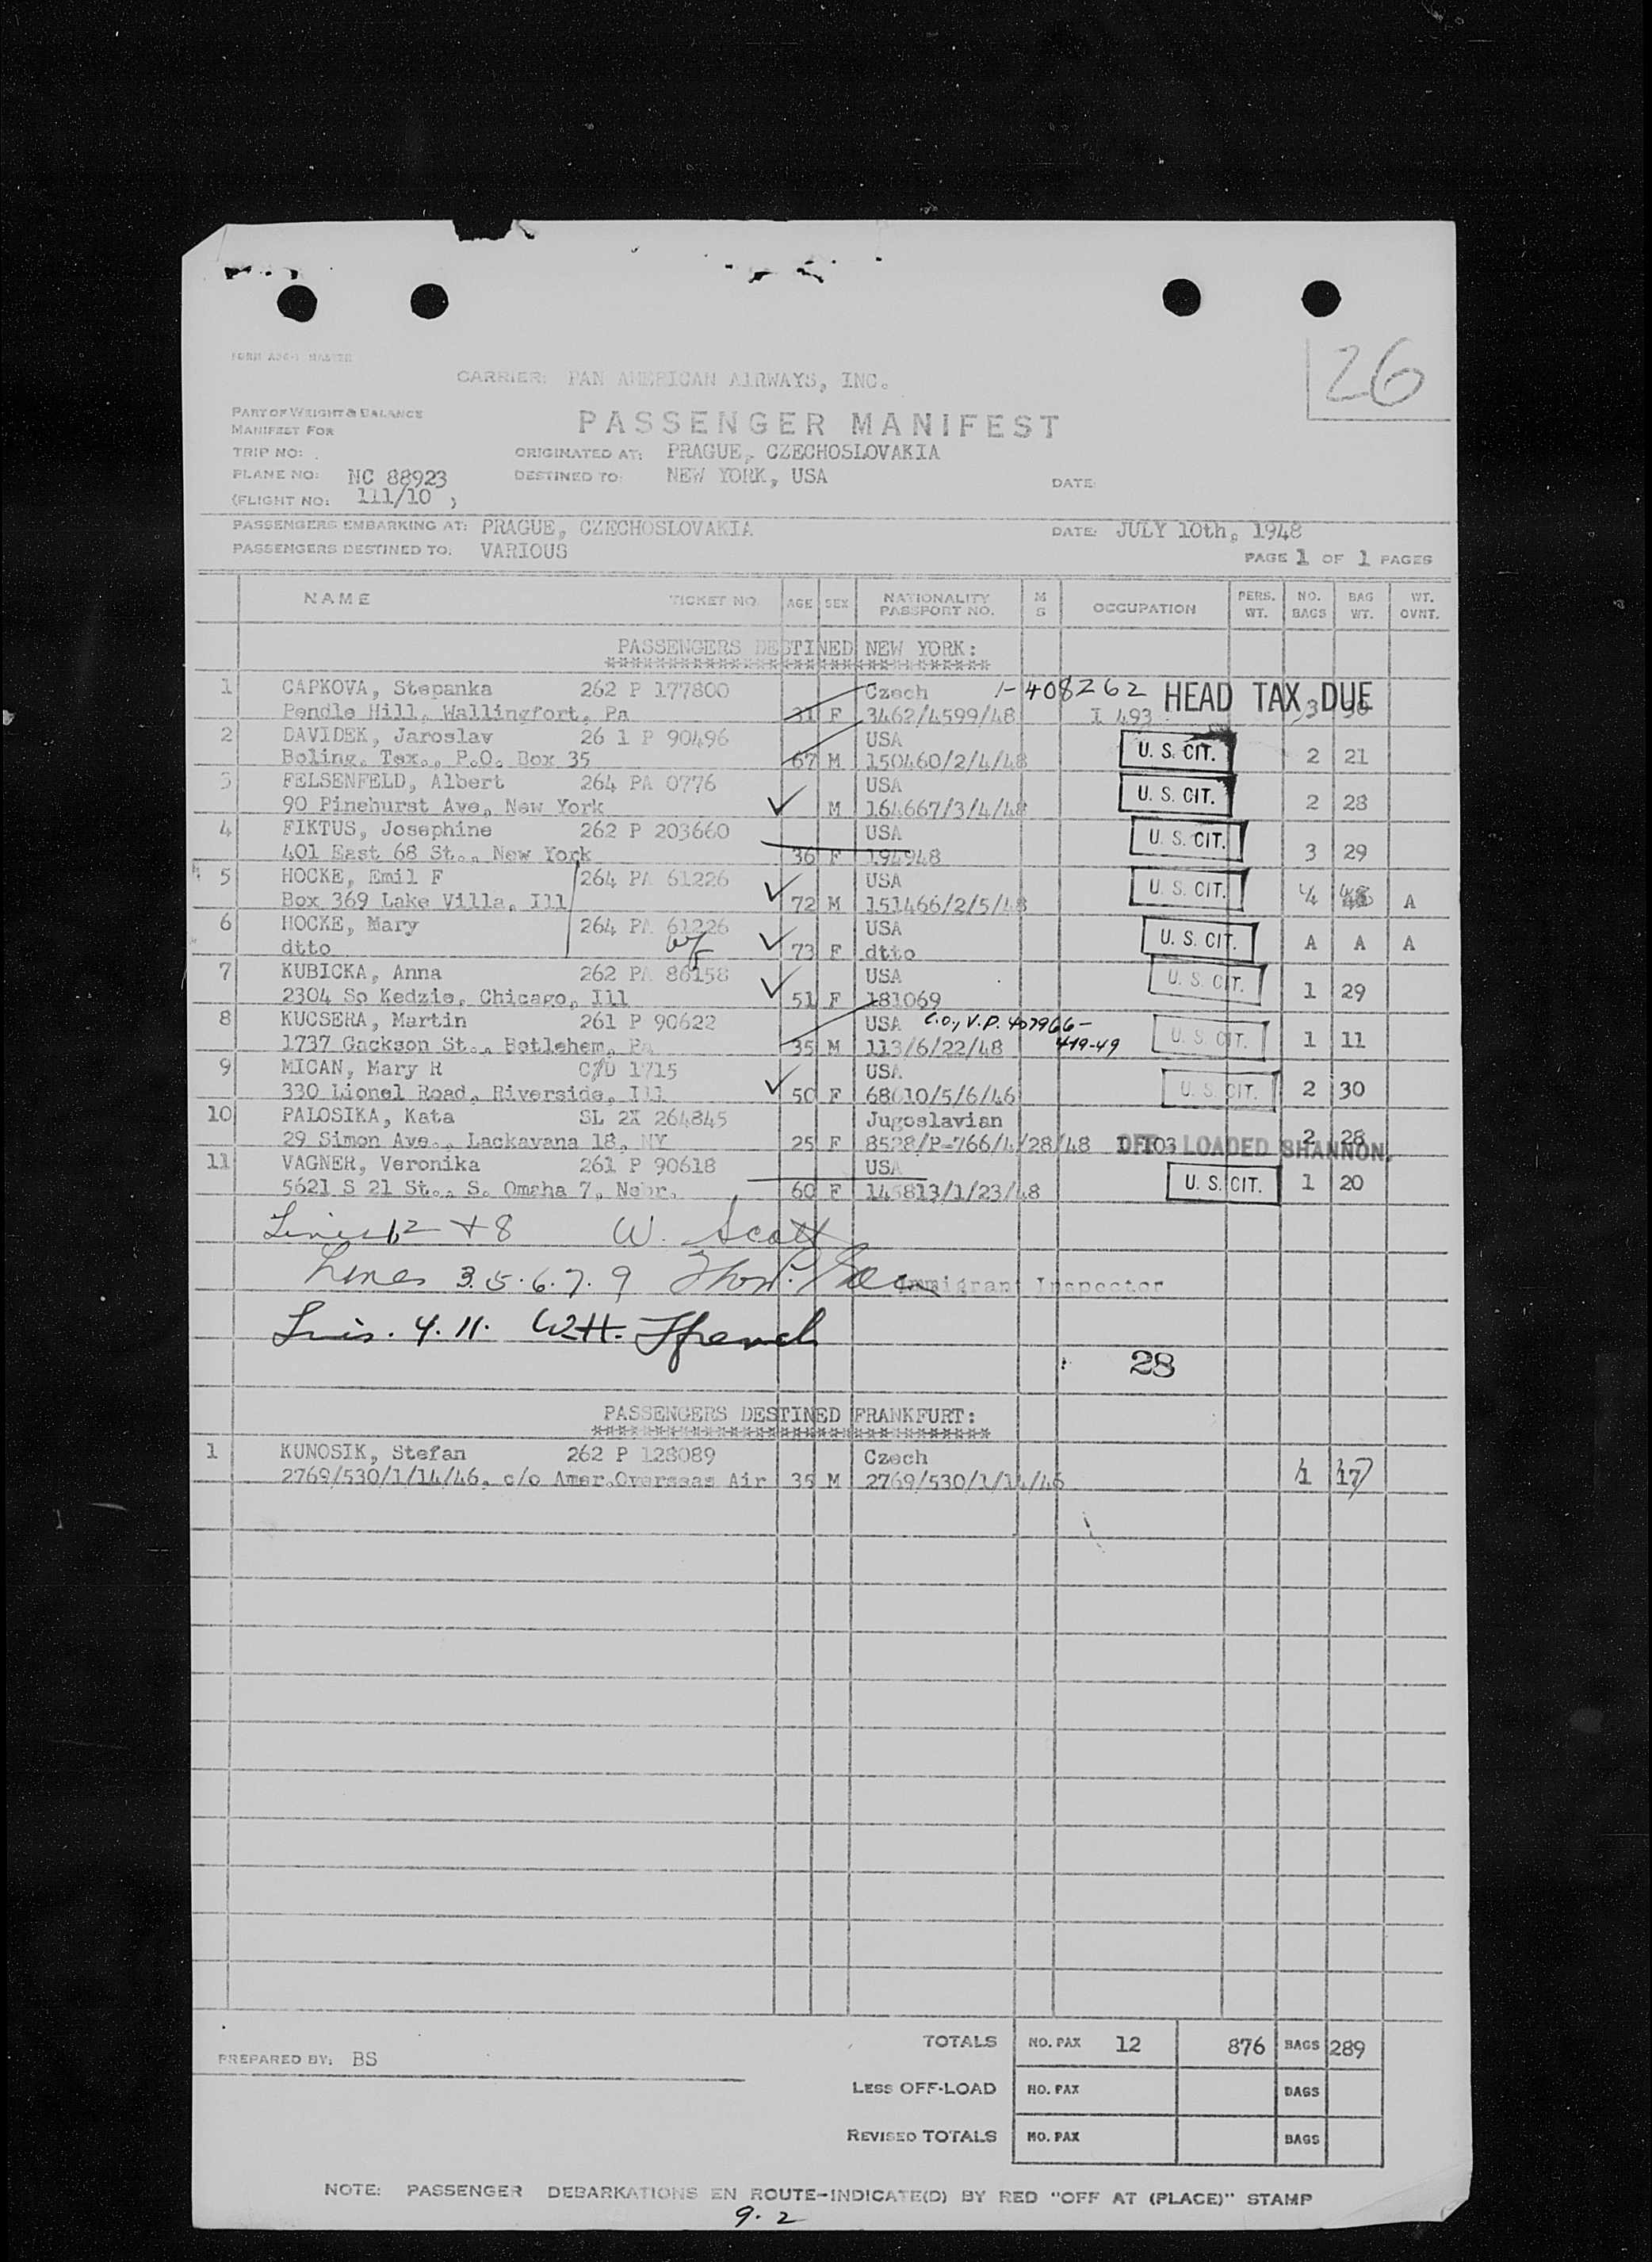 FORM ADC-1 MASTER
26
CARRIER: PAN AMERICAN AIRWAYS, INC.
PART OF WEIGHT & BALANCE
MANIFEST FOR
PASSENGER MANIFEST
TRIP NO:
ORIGINATED AT: PRAGUE, CZECHOSLOVAKIA
PLANE NO: NC 88923
DESTINED TO: NEW YORK, USA
DATE:
(FLIGHT NO: 111/10 )
PASSENGERS EMBARKING AT: PRAGUE, CZECHOSLOVAKIA
DATE: JULY 10th, 1948
PASSENGERS DESTINED TO: VARIOUS
PAGE 1 OF 1 PAGES
NAME TICKET NO. AGE SEX NATIONALITY PASSPORT NO. M S OCCUPATION PERS. WT. NO. BAGS BAG WT. WT. OVNT.
PASSENGERS DESTINED NEW YORK:
************************************
1 CAPKOVA, Stepanka 262 P 177800 Czech 1-408262 HEAD TAX DUE
Pendle Hill, Wallingfort, Pa 31 F 3462/4599/48 I 493 3
2 DAVIDEK, Jaroslav 26 1 P 90496 USA U. S. CIT.
Boling, Tex., P.O. Box 35 67 M 150460/2/4/48 2 21
3 FELSENFELD, Albert 264 PA 0776 USA U. S. CIT.
90 Pinehurst Ave, New York M 164667/3/4/48 2 28
4 FIKTUS, Josephine 262 P 203660 USA U. S. CIT.
401 East 68 St., New York 36 F 194948 3 29
5 HOCKE, Emil F 264 PA 61226 USA U. S. CIT.
Box 369 Lake Villa, Ill 72 M 151466/2/5/48 4 A
6 HOCKE, Mary 264 PA 61226 USA U. S. CIT.
dtto 73 F dtto A A A
7 KUBICKA, Anna 262 PA 86158 USA U. S. CIT.
2304 So Kedzie, Chicago, Ill 51 F 181069 1 29
8 KUCSERA, Martin 261 P 90622 USA C.O., V.P. 407966- U. S. CIT.
1737 Gackson St., Betlehem, Pa 35 M 113/6/22/48 4-19-49 1 11
9 MICAN, Mary R C/D 1715 USA U. S. CIT.
330 Lionel Road, Riverside, Ill 50 F 68610/5/6/46 2 30
10 PALOSIKA, Kata SL 2X 264845 Jugoslavian
29 Simon Ave., Lackavana 18, NY 25 F 8528/P-766/4/28/48 I 103 OFF LOADED SHANNON. 2 28
11 VAGNER, Veronika 261 P 90618 USA U. S. CIT.
5621 S 21 St., S. Omaha 7, Nebr. 60 F 145813/1/23/48 1 20
Lines 1,2 + 8 W. Scott
Lines 3.5.6.7.9 Immigrant Inspector
Lines. 4. 11. W.H. Ffrench
28
PASSENGERS DESTINED FRANKFURT:
************************************
1 KUNOSIK, Stefan 262 P 128089 Czech
2769/530/1/14/46, c/o Amer.Overseas Air 35 M 2769/530/1/14/46 1 17
TOTALS NO. PAX 12 876 BAGS 289
PREPARED BY: BS
LESS OFF-LOAD NO. PAX BAGS
REVISED TOTALS NO. PAX BAGS
NOTE: PASSENGER DEBARKATIONS EN ROUTE-INDICATE(D) BY RED "OFF AT (PLACE)" STAMP
9. 2